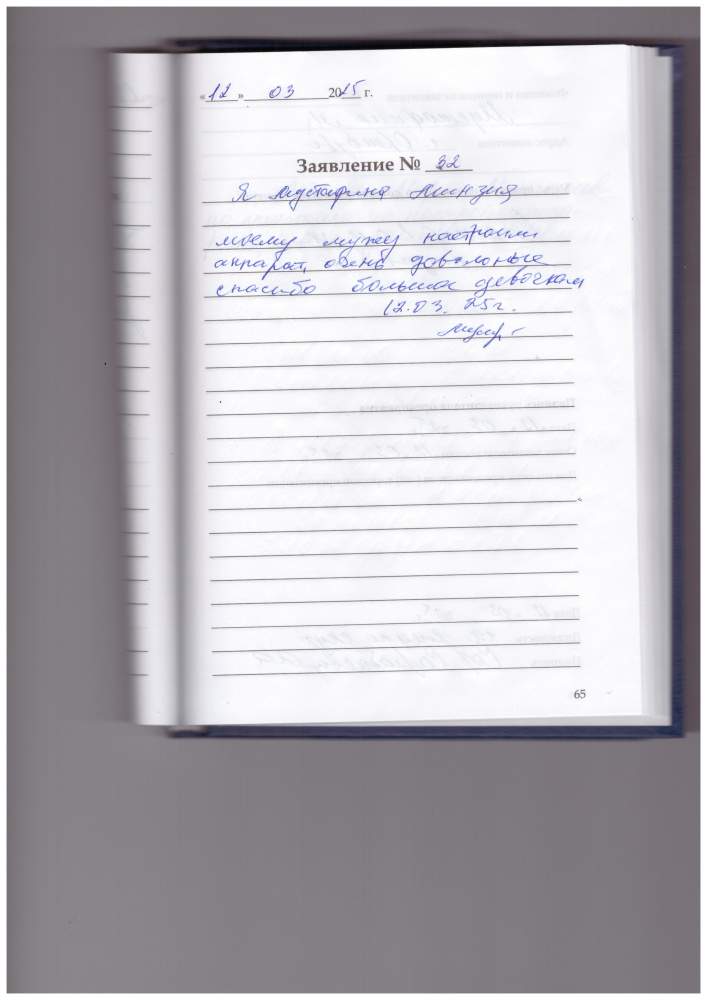 «12» 03 2025 г.
Заявление № 32
Я Мустафина Минзия
моему мужу настроили
аппарат, очень довольные
спасибо большое девочкам
12.03. 25г.
65